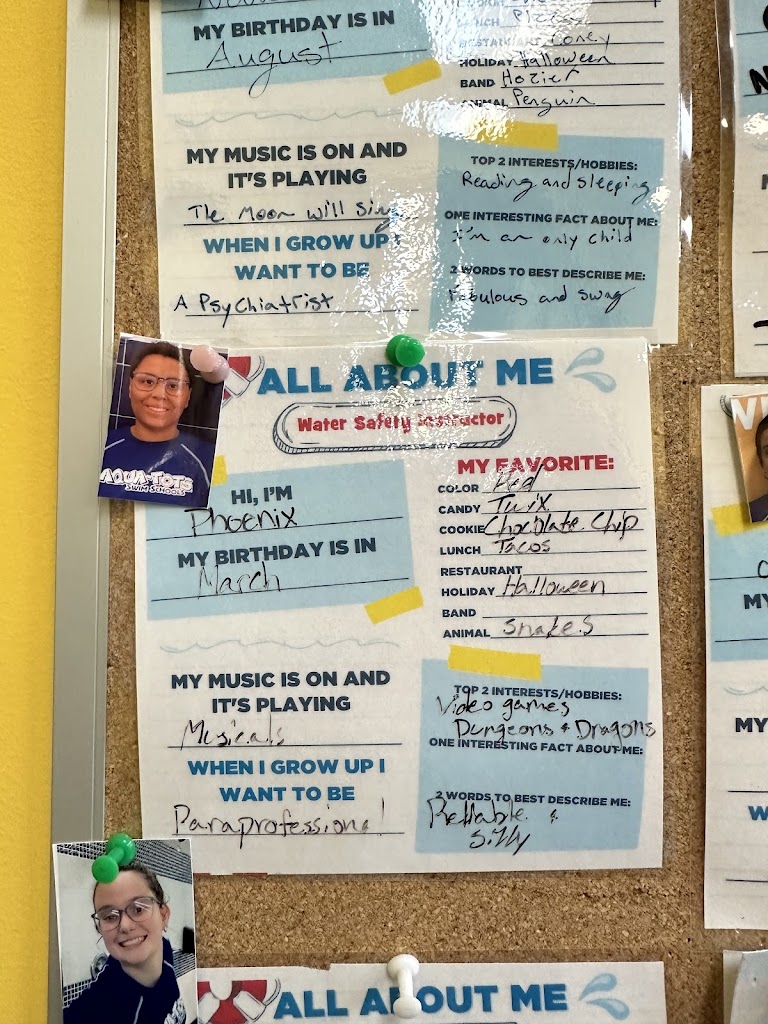 MY BIRTHDAY IS IN
August
LUNCH Pizza
RESTAURANT Coney
HOLIDAY Halloween
BAND Hozier
ANIMAL Penguin
MY MUSIC IS ON AND
IT'S PLAYING
The Moon will Sing
WHEN I GROW UP I
WANT TO BE
A Psychiatrist
TOP 2 INTERESTS/HOBBIES:
Reading and sleeping
ONE INTERESTING FACT ABOUT ME:
I'm an only child
2 WORDS TO BEST DESCRIBE ME:
Fabulous and swag
ALL ABOUT ME
Water Safety Instructor
AQUA-TOTS
SWIM SCHOOLS
HI, I'M
Phoenix
MY BIRTHDAY IS IN
March
MY FAVORITE:
COLOR Red
CANDY Twix
COOKIE Chocolate Chip
LUNCH Tacos
RESTAURANT
HOLIDAY Halloween
BAND
ANIMAL Snakes
MY MUSIC IS ON AND
IT'S PLAYING
Musicals
WHEN I GROW UP I
WANT TO BE
Paraprofessional
TOP 2 INTERESTS/HOBBIES:
Video games
Dungeons & Dragons
ONE INTERESTING FACT ABOUT ME:
2 WORDS TO BEST DESCRIBE ME:
Reliable &
Silly
ALL ABOUT ME
MY